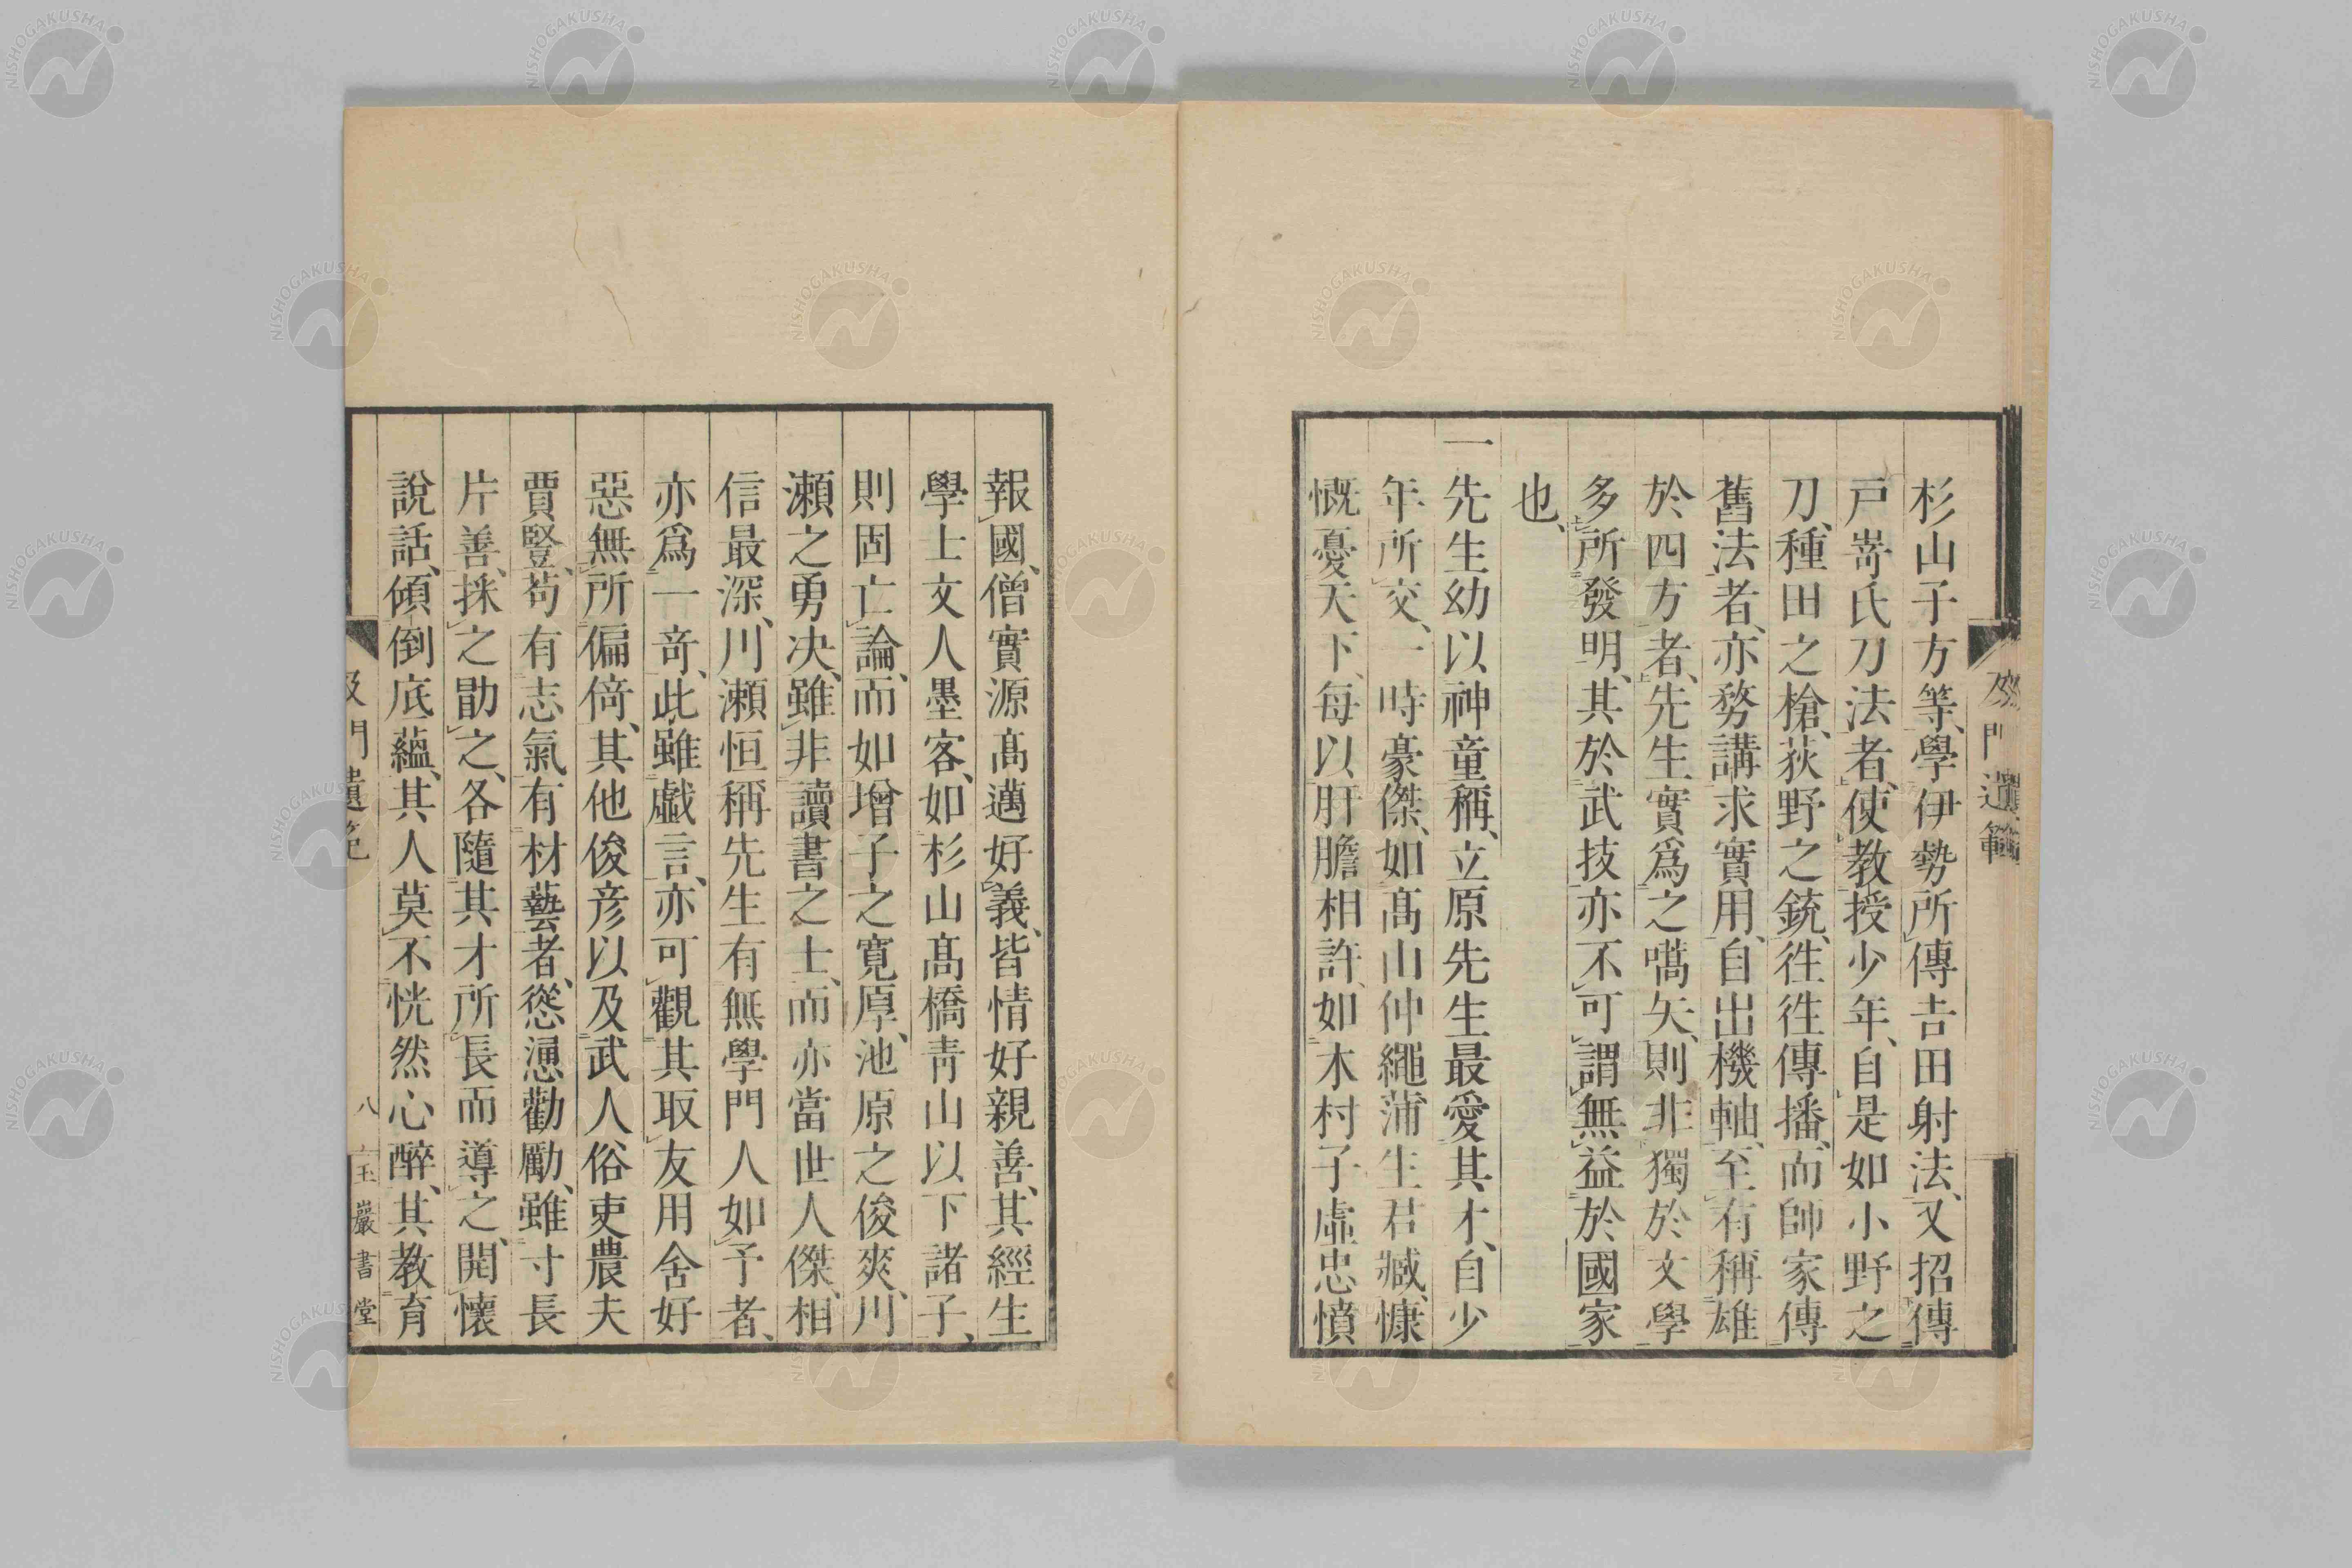 杉山子方等、學伊勢所傳吉田射法、又招傳
戸嵜氏刀法者、使教授少年、自是如小野之
刀、種田之槍、荻野之銃、往往傳播、而師家傳
舊法者、亦務講求實用、自出機軸、至有稱雄
於四方者、先生實爲之嚆矢、則非獨於文學
多所發明、其於武技亦不可謂無益於國家
也、
一先生幼以神童稱、立原先生最愛其才、自少
年所交、一時豪傑、如髙山仲繩蒲生君臧、慷
慨憂天下、每以肝膽相許、如木村子虛忠憤
報國、僧實源髙邁好義、皆情好親善、其經生
學士文人墨客、如杉山髙橋青山以下諸子、
則固亡論、而如增子之寬厚、池原之俊爽、川
瀬之勇决、雖非讀書之士、而亦當世人傑、相
信最深、川瀬恒稱先生有無學門人如予者、
亦爲一奇、此雖戯言、亦可觀其取友用舍好
惡無所偏倚、其他俊彦以及武人俗吏農夫
賈豎、苟有志氣有材藝者、慫慂勸勵、雖寸長
片善、採之勖之、各隨其才所長而導之、開懷
說話、傾倒底蘊、其人莫不恍然心醉、其教育
及門遺範
八
玉巖書堂
NISHOGAKUSHA